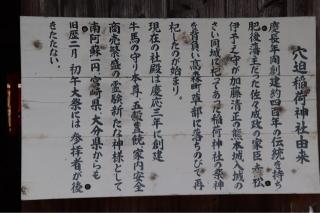 穴迫稲荷神社由来
慶長年間創建約四百年の伝統を持ち
肥後藩主だった佐々成政の家臣、赤松
伊予之守が加藤清正の熊本城入城の
さい同城に祀ってあった稲荷神社の祭神
を背負い、高森町草部に落ちのびて再
祀したのが始まり。
現在の社殿は慶応三年に創建
牛馬の守り本尊、五穀豊饒、家内安全
商売繁盛の霊験新たな神様として
南阿蘇一円、宮崎県、大分県からも
旧歴二月初午大祭には参拝者が後
をたたない。